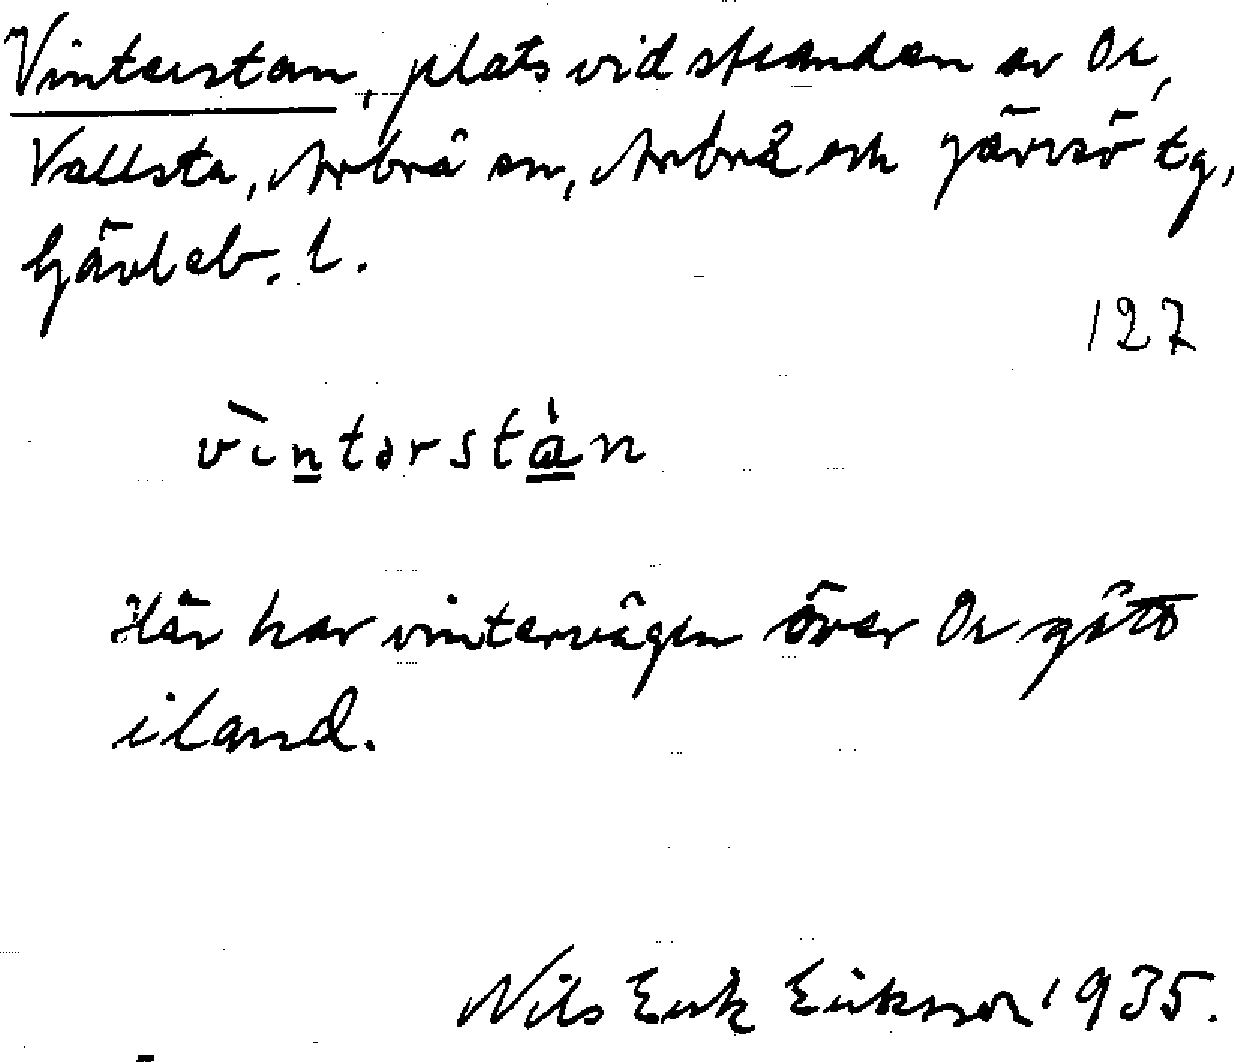 Vinterstan, plats vid stranden av Or,
Vallsta, Arbrå sn, Arbrå och Järvsö tg,
Gävleb. l.
127
vìntərstàn
Här har vintervägen över Or gått
iland.
Nils Erik Eriksson 1935.